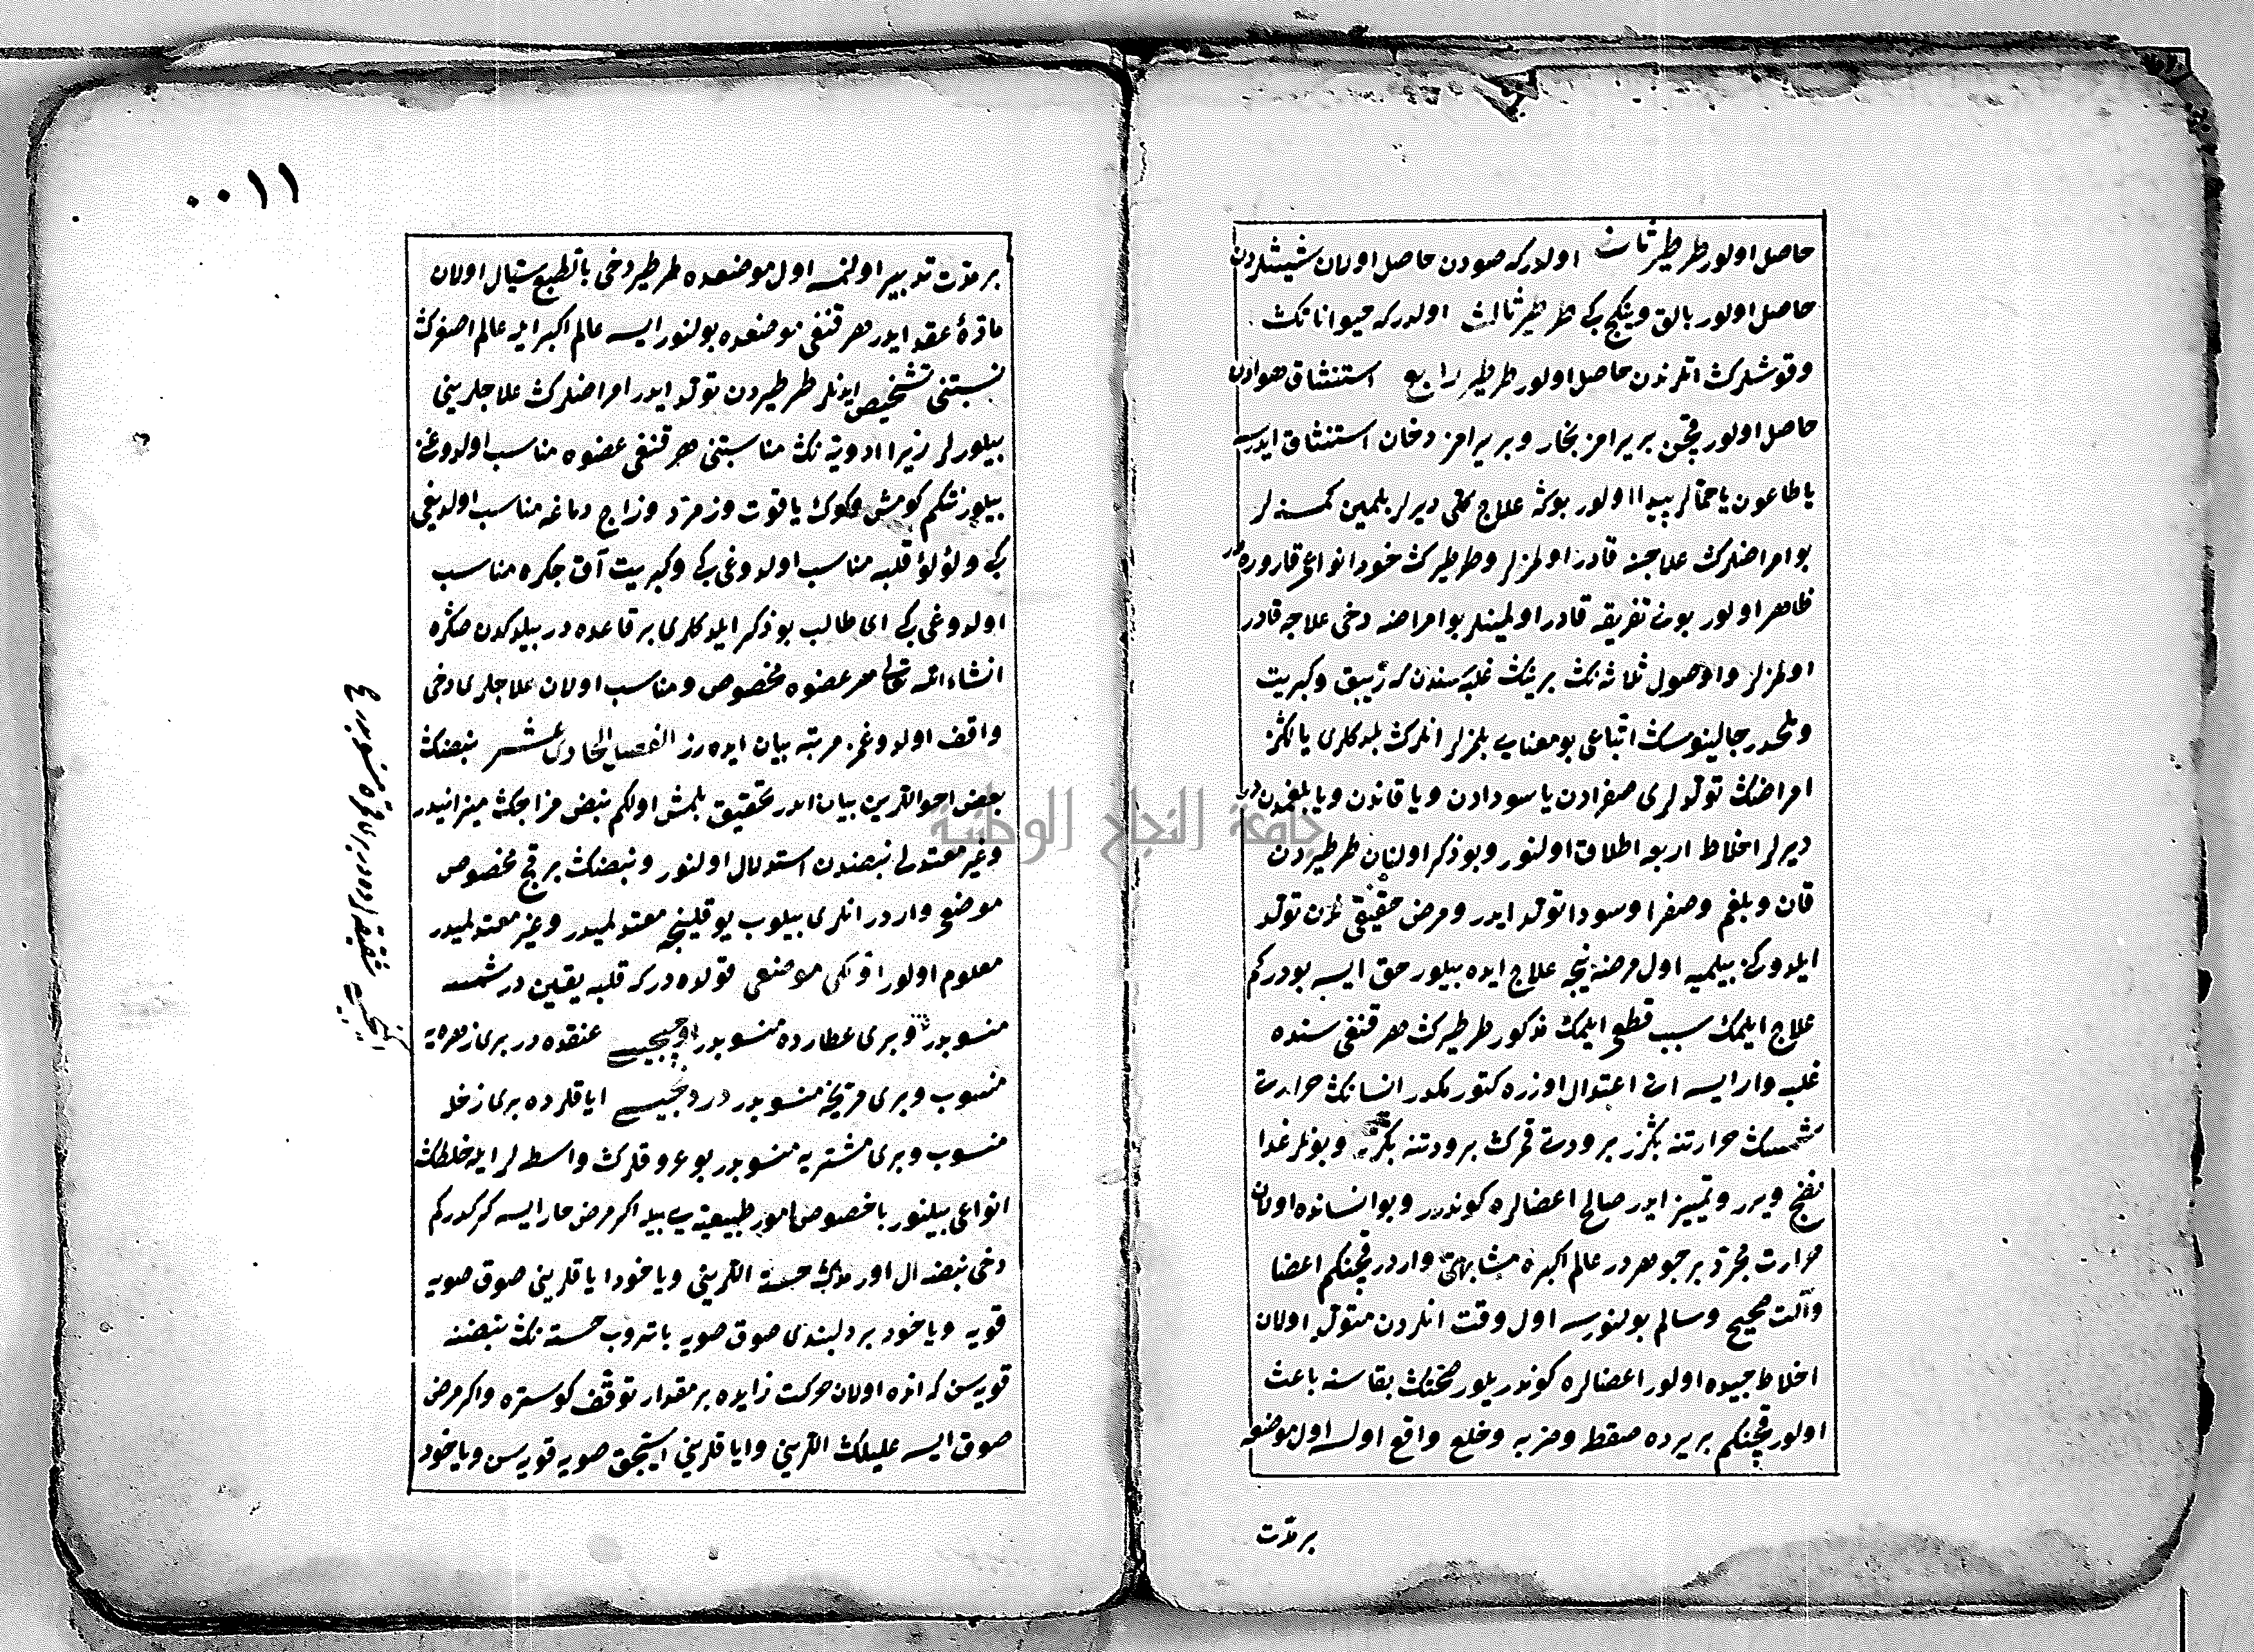 حاصل اولور طرطیر ثانی اولدرکه صودن حاصل اولان شیشلردن
حاصل اولور بالق وینکج کبی طرطیر ثالث اولدرکه حیواناتك
وقوشلرك اتلرندن حاصل اولور طرطیر رابع استنشاق هوادن
حاصل اولور قچن بر یرامز بخار وبر یرامز دخان استنشاق ایدرسه
یا طاعون یا حمّالر پیدا اولور بوکه علاج کلی دیرلر بلمین کمسنه لر
بو امراضلرك علاجنه قادر اولمزلر وطرطیرك خود انواعی قاروره ده
ظاهر اولور بونی تفریقه قادر اولمینلر بو امراضه دخی علاجه قادر
اولمزلر واصول ثلاثه نك برینك غلبه سندن که زیبق وکبریت
وملحدر جالینوسك اتباعی بو معنایی بلمزلر انلرك بلدکلری یالکز
امراضك تولدلری صفرادن یا سودادن ویا قاندن ویا بلغمدن در
دیرلر اخلاط اربعه اطلاق اولنور وبو ذکر اولنان طرطیردن
قان وبلغم وصفرا وسودا تولد ایدر ومرض حقیقی ندن تولد
ایلدوکن بیلمیه اول مرضه نیجه علاج ایده بیلور حق ایسه بودرکم
علاج ایلمك سبب قطع ایلمك مذکور طرطیرك هر قنغی سنده
غلبه وار ایسه انی اعتدال اوزره کتورمکدر انسانك حرارت
شمسك حرارتنه بکزر برودت قمرك برودتنه بکزر وبونلر غدا
نضج ویرر وتمییز ایدر صالح اعضالره کوندرر وبو انسانده اولان
حرارت مجرد بر جوهردر عالم اکبره مشابهتی واردر قچنکم اعضا
وآلت صحیح وسالم بولنورسه اول وقت انلردن متولد اولان
اخلاط جیده اولور اعضالره کوندریلور صحتك بقاسنه باعث
اولور قچنکم بر یرده صقط وضربه وخلع واقع اولسه اول موضعه
بر مدت
٠٠١١
بر مدت تدبیر اولنمسه اول موضعده طرطیر دخی بالطبع سیال اولان
مادّهٔ عقد ایدر هر قنغی موضعده بولنور ایسه عالم اکبر ایله عالم اصغرك
نسبتنی تشخیص ایدنلر طرطیردن تولد ایدر امراضلرك علاجلرینی
بیلورلر زیرا ادویه نك مناسبتنی هر قنغی عضوه مناسب اولدوغن
بیلورلر نتکم کومش وکوك یاقوت وزمرد وزاج دماغه مناسب اولدیغی
کبی ولؤلؤ قلبه مناسب اولدوغی کبی وکبریت آق جکره مناسب
اولدوغی کبی ای طالب بو ذکر ایلدکلری بر قاعده در بیلدکدن صکره
انشاءالله تعالی هر عضوه مخصوص ومناسب اولان علاجلری دخی
واقف اولدوغمز مرتبه بیان ایده رز الفصل الحادی عشر نبضك
بعض احوالارین بیان ایدر تحقیق بلمش اولکم نبض مزاجك میزانیدر
وغیر معتدلی نبضدن استدلال اولنور ونبضك بر قچ مخصوص
موضعی واردر انلری بیلوب یوقلینجه معتدلمیدر وغیر معتدلمیدر
معلوم اولور اولکی موضعی قولده درکه قلبه یقین در شمسه
منسوبدر وبری عطارده منسوبدر اوچنجیسی عنقده در بری زهره یه
منسوب وبری مریخه منسوبدر دردنجیسی ایاقلرده بری زحله
منسوب وبری مشتریه منسوبدر بو عروقلرك واسطه لر ایله خلطك
انواعی بیلنور باخصوص امور طبیعیه یی بیله اکر مرض حار ایسه کرکدرکم
دخی نبضه ال اورمدین خسته اللرینی ویاخود ایاقلرینی صوق صویه
قویه ویاخود بر دلبندی صوق صویه باتروب خسته نك نبضنه
قویه سن که انده اولان حرکت زایده بر مقدار توقف کوستره واکر مرض
صوق ایسه علیلك اللرینی وایاقلرینی ایسیجق صویه قویه سن ویاخود